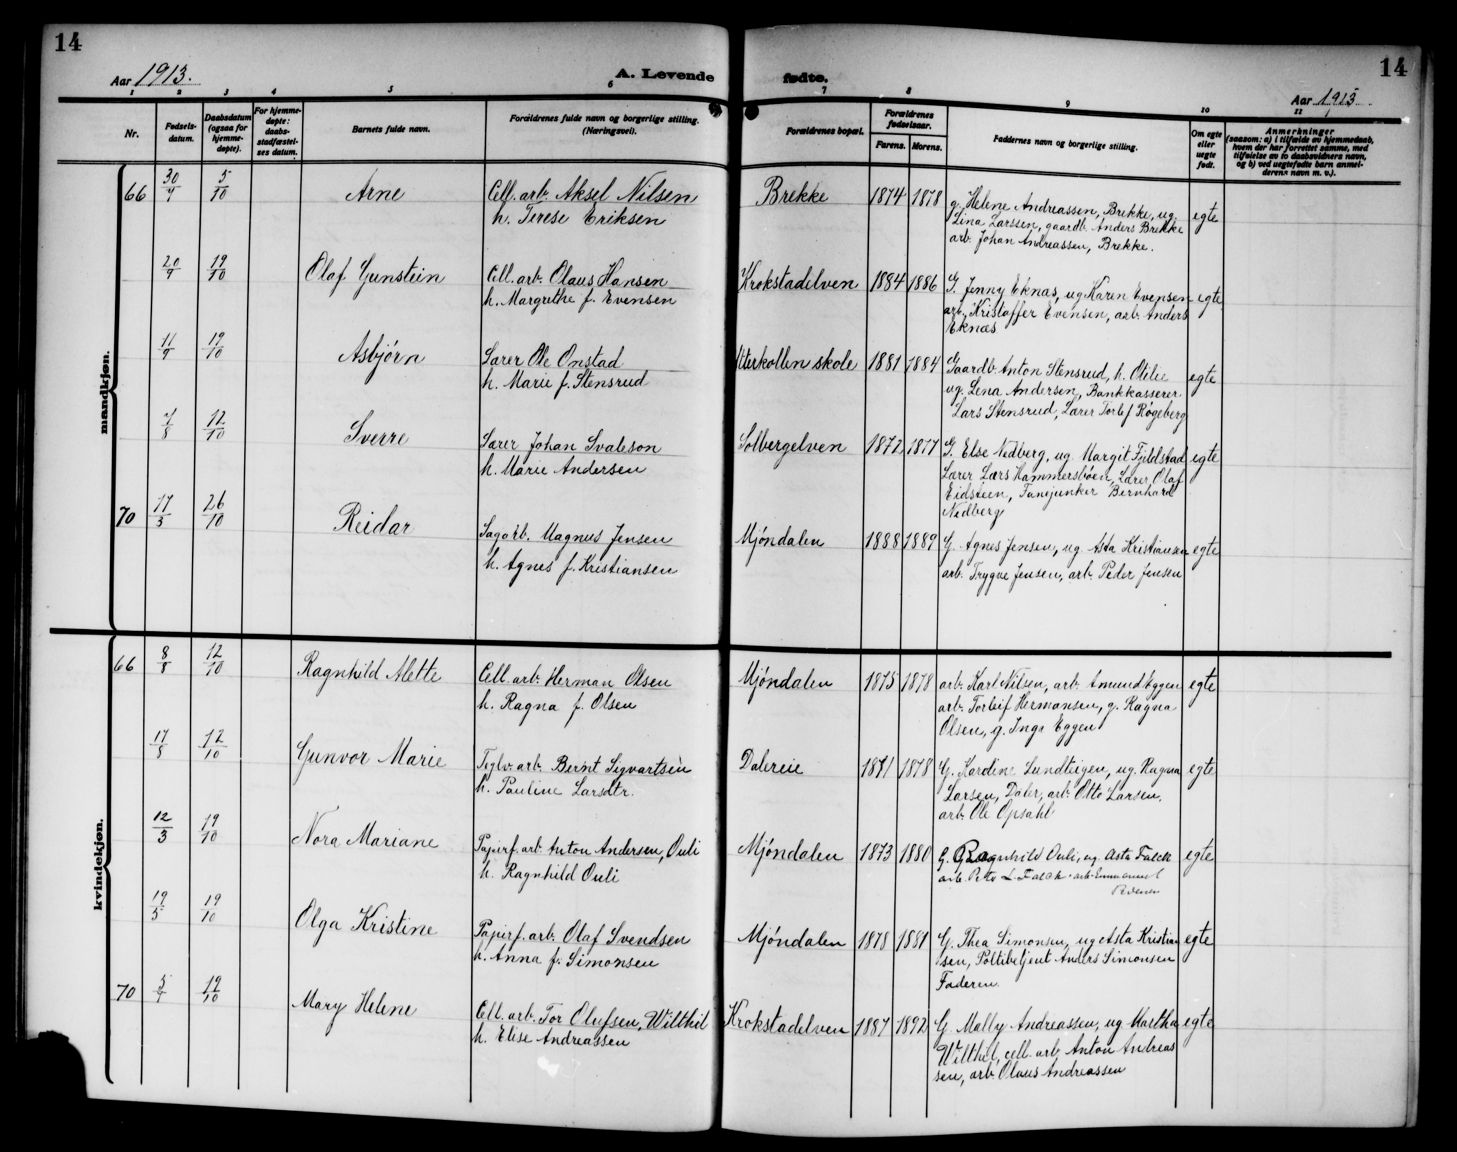 14
Aar 1913.
A. Levende
fødte.
Aar 1913
14
1 2 3 4 5 6 7 8 9 10 11
Nr.
Fødsels-
datum.
Daabsdatum
(ogsaa for
hjemme-
døpte).
For hjemme-
døpte:
daabs-
stadfæstel-
ses datum.
Barnets fulde navn.
Forældrenes fulde navn og borgerlige stilling.
(Næringsvei).
Forældrenes bopæl.
Forældrenes
fødselsaar.
Farens. Morens.
Faddernes navn og borgerlige stilling.
Om egte
eller
uegte
født.
Anmerkninger
(saasom: a) i tilfælde av hjemmedaab,
hvem der har forrettet samme, med
tilføielse av to daabsvidners navn,
og b) ved uegtefødte barn anmel-
derens navn m. v.).
mandkjøn.
66 30/9 5/10 Arne Cell. arb. Aksel Nilsen Brekke 1874 1878 g. Helene Andreassen, Brekke, ug.
h. Terese Eriksen Lina Larssen, gaardb. Anders Brekke egte
arb. Johan Andreassen, Brekke.
20/9 19/10 Olaf Gunstein Cell. arb. Olaus Hansen Krokstadelven 1884 1886 G. Jenny Eknæs, ug Karen Evensen egte
h. Margrethe f. Evensen arb. Kristoffer Evensen, arb. Anders
Eknæs
11/9 19/10 Asbjørn Lærer Ole Onstad skole 1881 1884 Gaardb. Anton Stensrud, h. Otilie egte
h. Marie f. Stensrud ug. Lena Andersen, Bankkasserer
Lars Stensrud, Lærer Torlef Røgeberg
/8 12/10 Sverre Lærer Johan Svaleson Solbergelven 1872 1877 G. Else Nedberg, ug. Margit Fjeldstad egte
h. Marie Andersen Lærer Lars Hammersbøen, Lærer Olaf
Eidsteen, Fanejunker Bernhard
Nedberg
70 17/3 26/10 Reidar Sagarb. Magnus Jensen Mjøndalen 1888 1889 G. Agnes Jensen, ug. Asta Kristiansen egte
h. Agnes f. Kristiansen arb. Trygve Jensen, arb. Peder Jensen
kvindekjøn.
66 8/8 12/10 Ragnhild Alette Cell. arb. Herman Olsen Mjøndalen 1875 1878 arb. Karl Nilsen, arb. Amund Eggen egte
h. Ragna f. Olsen arb. Torleif Hermansen, g. Ragna
Olsen, g. Inga Eggen
17/8 12/10 Gunvor Marie Teglv. arb. Bernt Sigvartsen 1871 1878 G. Kardine Lundteigen, ug. Ragna egte
h. Pauline Larsdtr. Larsen, Daler, arb. Otto Larsen,
arb. Ole Opsahl
12/3 19/10 Nora Mariane Papirf. arb. Anton Andersen, Ouli Mjøndalen 1873 1880 G. Ragnhild Ouli, ug. Asta Falck egte
h. Ragnhild Ouli arb. L. Falck arb. Emmanuel
19/5 19/10 Olga Kristine Papirf. arb. Olaf Svendsen Mjøndalen 1878 1881 G. Thea Simonsen, ug Asta Kristian egte
h. Anna f. Simonsen sen, Politibetjent Anders Simonsen
Faderen
70 5/9 19/10 Mary Helene Cell. arb. Tor Olufsen, Wilthil Krokstadelven 1887 1892 G. Mally Andreassen, ug Martha egte
h. Elise Andreassen Wilthil, cell. arb. Anton Andreas
sen, arb. Olaus Andreassen